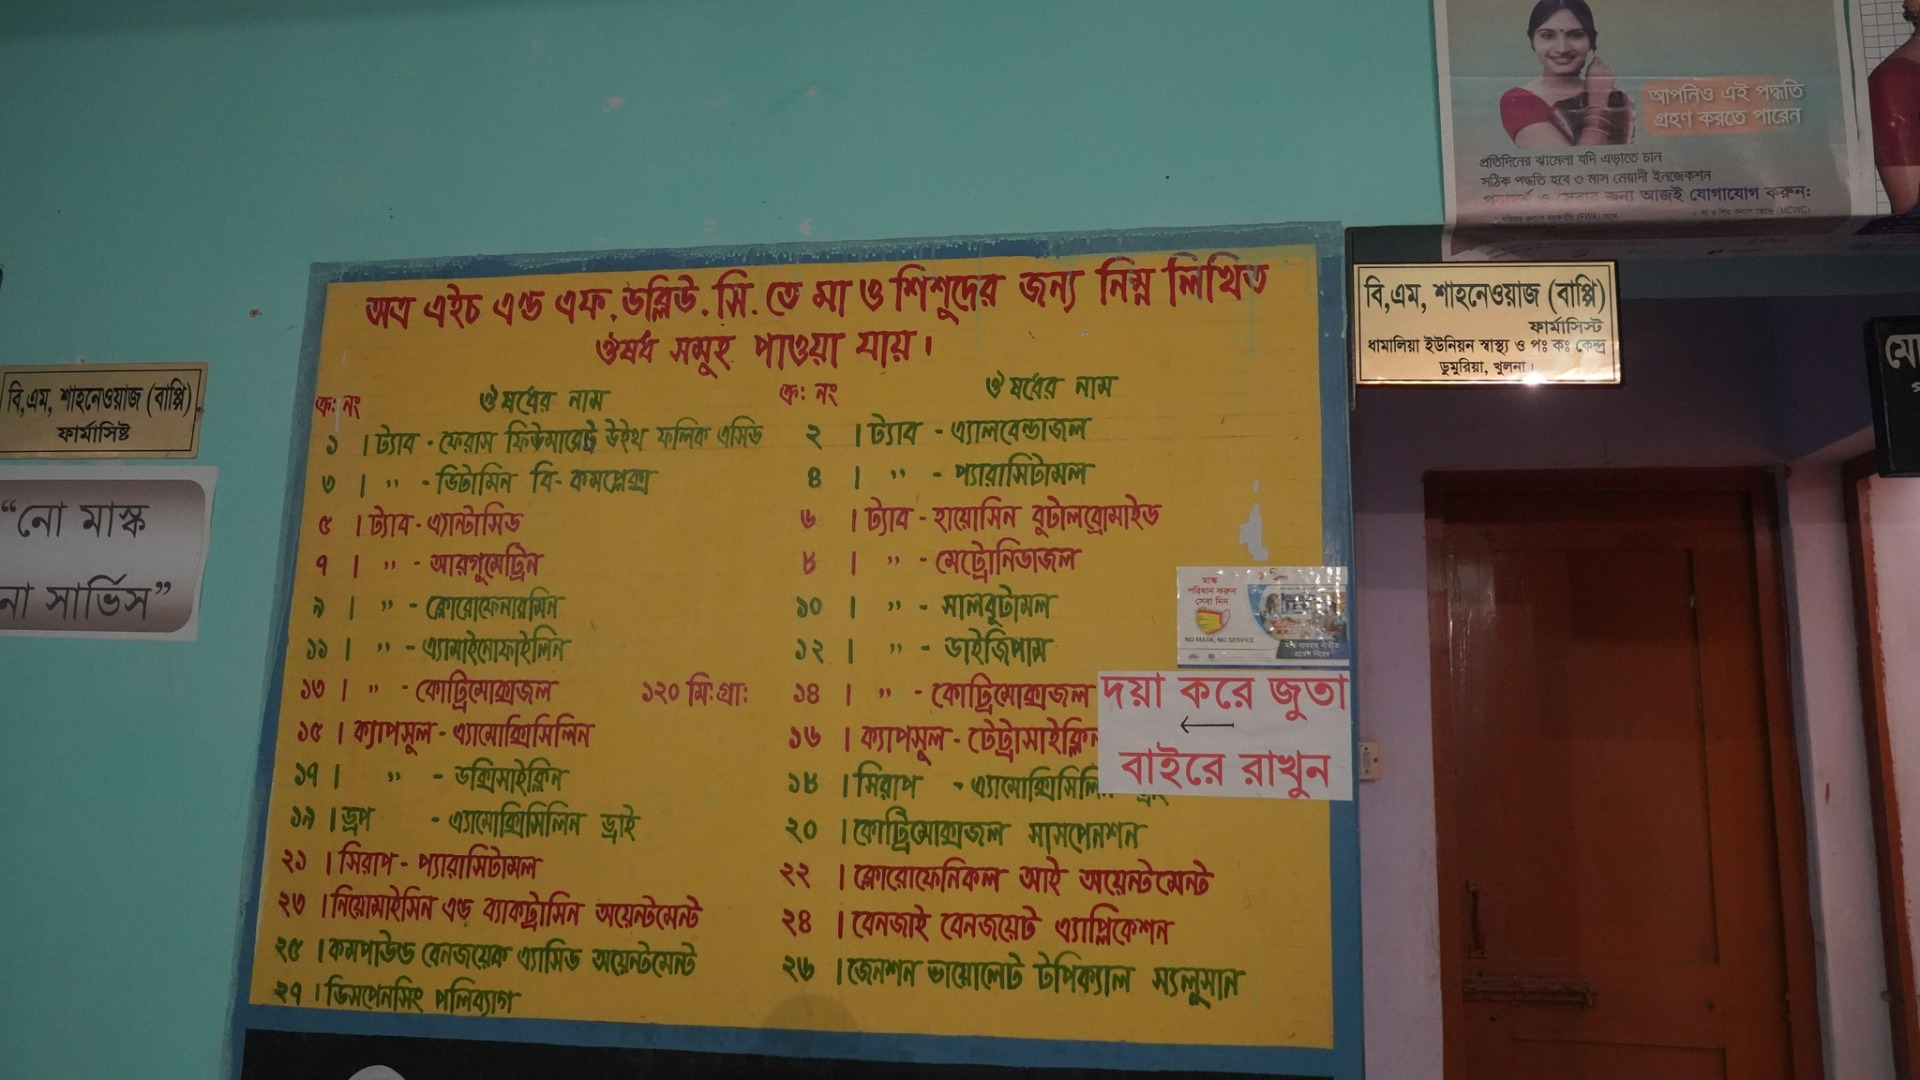 আপনিও এই পদ্ধতি
গ্রহণ করতে পারেন
প্রতিদিনের ঝামেলা যদি এড়াতে চান
সঠিক পদ্ধতি হবে ৩ মাস মেয়াদী ইনজেকশন
পরামর্শ ও সেবার জন্য আজই যোগাযোগ করুন:
(FWA)
(MCWC)
অত্র এইচ এন্ড এফ.ডব্লিউ.সি. তে মা ও শিশুদের জন্য নিম্ন লিখিত
ঔষধ সমূহ পাওয়া যায়।
ক্র: নং ঔষধের নাম ক্র: নং ঔষধের নাম
১ । ট্যাব - ফেরাস ফিউমারেট উইথ ফলিক এসিড ২ । ট্যাব - এ্যালবেন্ডাজল
৩ । ” - ভিটামিন বি- কমপ্লেক্স ৪ । ” - প্যারাসিটামল
৫ । ট্যাব - এ্যান্টাসিড ৬ । ট্যাব - হায়োসিন বুটালব্রোমাইড
৭ । ” - আরগুমেট্রিন ৮ । ” - মেট্রোনিডাজল
৯ । ” - ক্লোরোফেনারমিন ১০ । ” - সালবুটামল
১১ । ” - এ্যামাইনোফাইলিন ১২ । ” - ডাইজিপাম
১৩ । ” - কোট্রিমোক্সাজল ১২০ মি:গ্রা: ১৪ । ” - কোট্রিমোক্সাজল
১৫ । ক্যাপসুল - এ্যামোক্সিসিলিন ১৬ । ক্যাপসুল - টেট্রাসাইক্লিন
১৭ । ” - ডক্সিসাইক্লিন ১৮ । সিরাপ - এ্যামোক্সিসিলি
১৯ । ড্রপ - এ্যামোক্সিসিলিন ড্রাই ২০ । কোট্রিমোক্সাজল সাসপেনশন
২১ । সিরাপ - প্যারাসিটামল ২২ । ক্লোরোফেনিকল আই অয়েন্টমেন্ট
২৩ । নিয়োমাইসিন এন্ড ব্যাকট্রাসিন অয়েন্টমেন্ট ২৪ । বেনজাই বেনজয়েট এ্যাপ্লিকেশন
২৫ । কমপাউন্ড বেনজয়েক এ্যাসিড অয়েন্টমেন্ট ২৬ । জেনশন ভায়োলেট টপিক্যাল স্যলুসান
২৭ । ডিসপেনসিং পলিব্যাগ
বি,এম, শাহনেওয়াজ (বাপ্পি)
ফার্মাসিস্ট
ধামালিয়া ইউনিয়ন স্বাস্থ্য ও পঃ কঃ কেন্দ্র
ডুমুরিয়া, খুলনা।
বি,এম, শাহনেওয়াজ (বাপ্পি)
ফার্মাসিষ্ট
“নো মাস্ক
না সার্ভিস”
মাস্ক
পরিধান করুন
সেবা নিন
NO MASK, NO SERVICE
দয়া করে জুতা
←
বাইরে রাখুন
মো